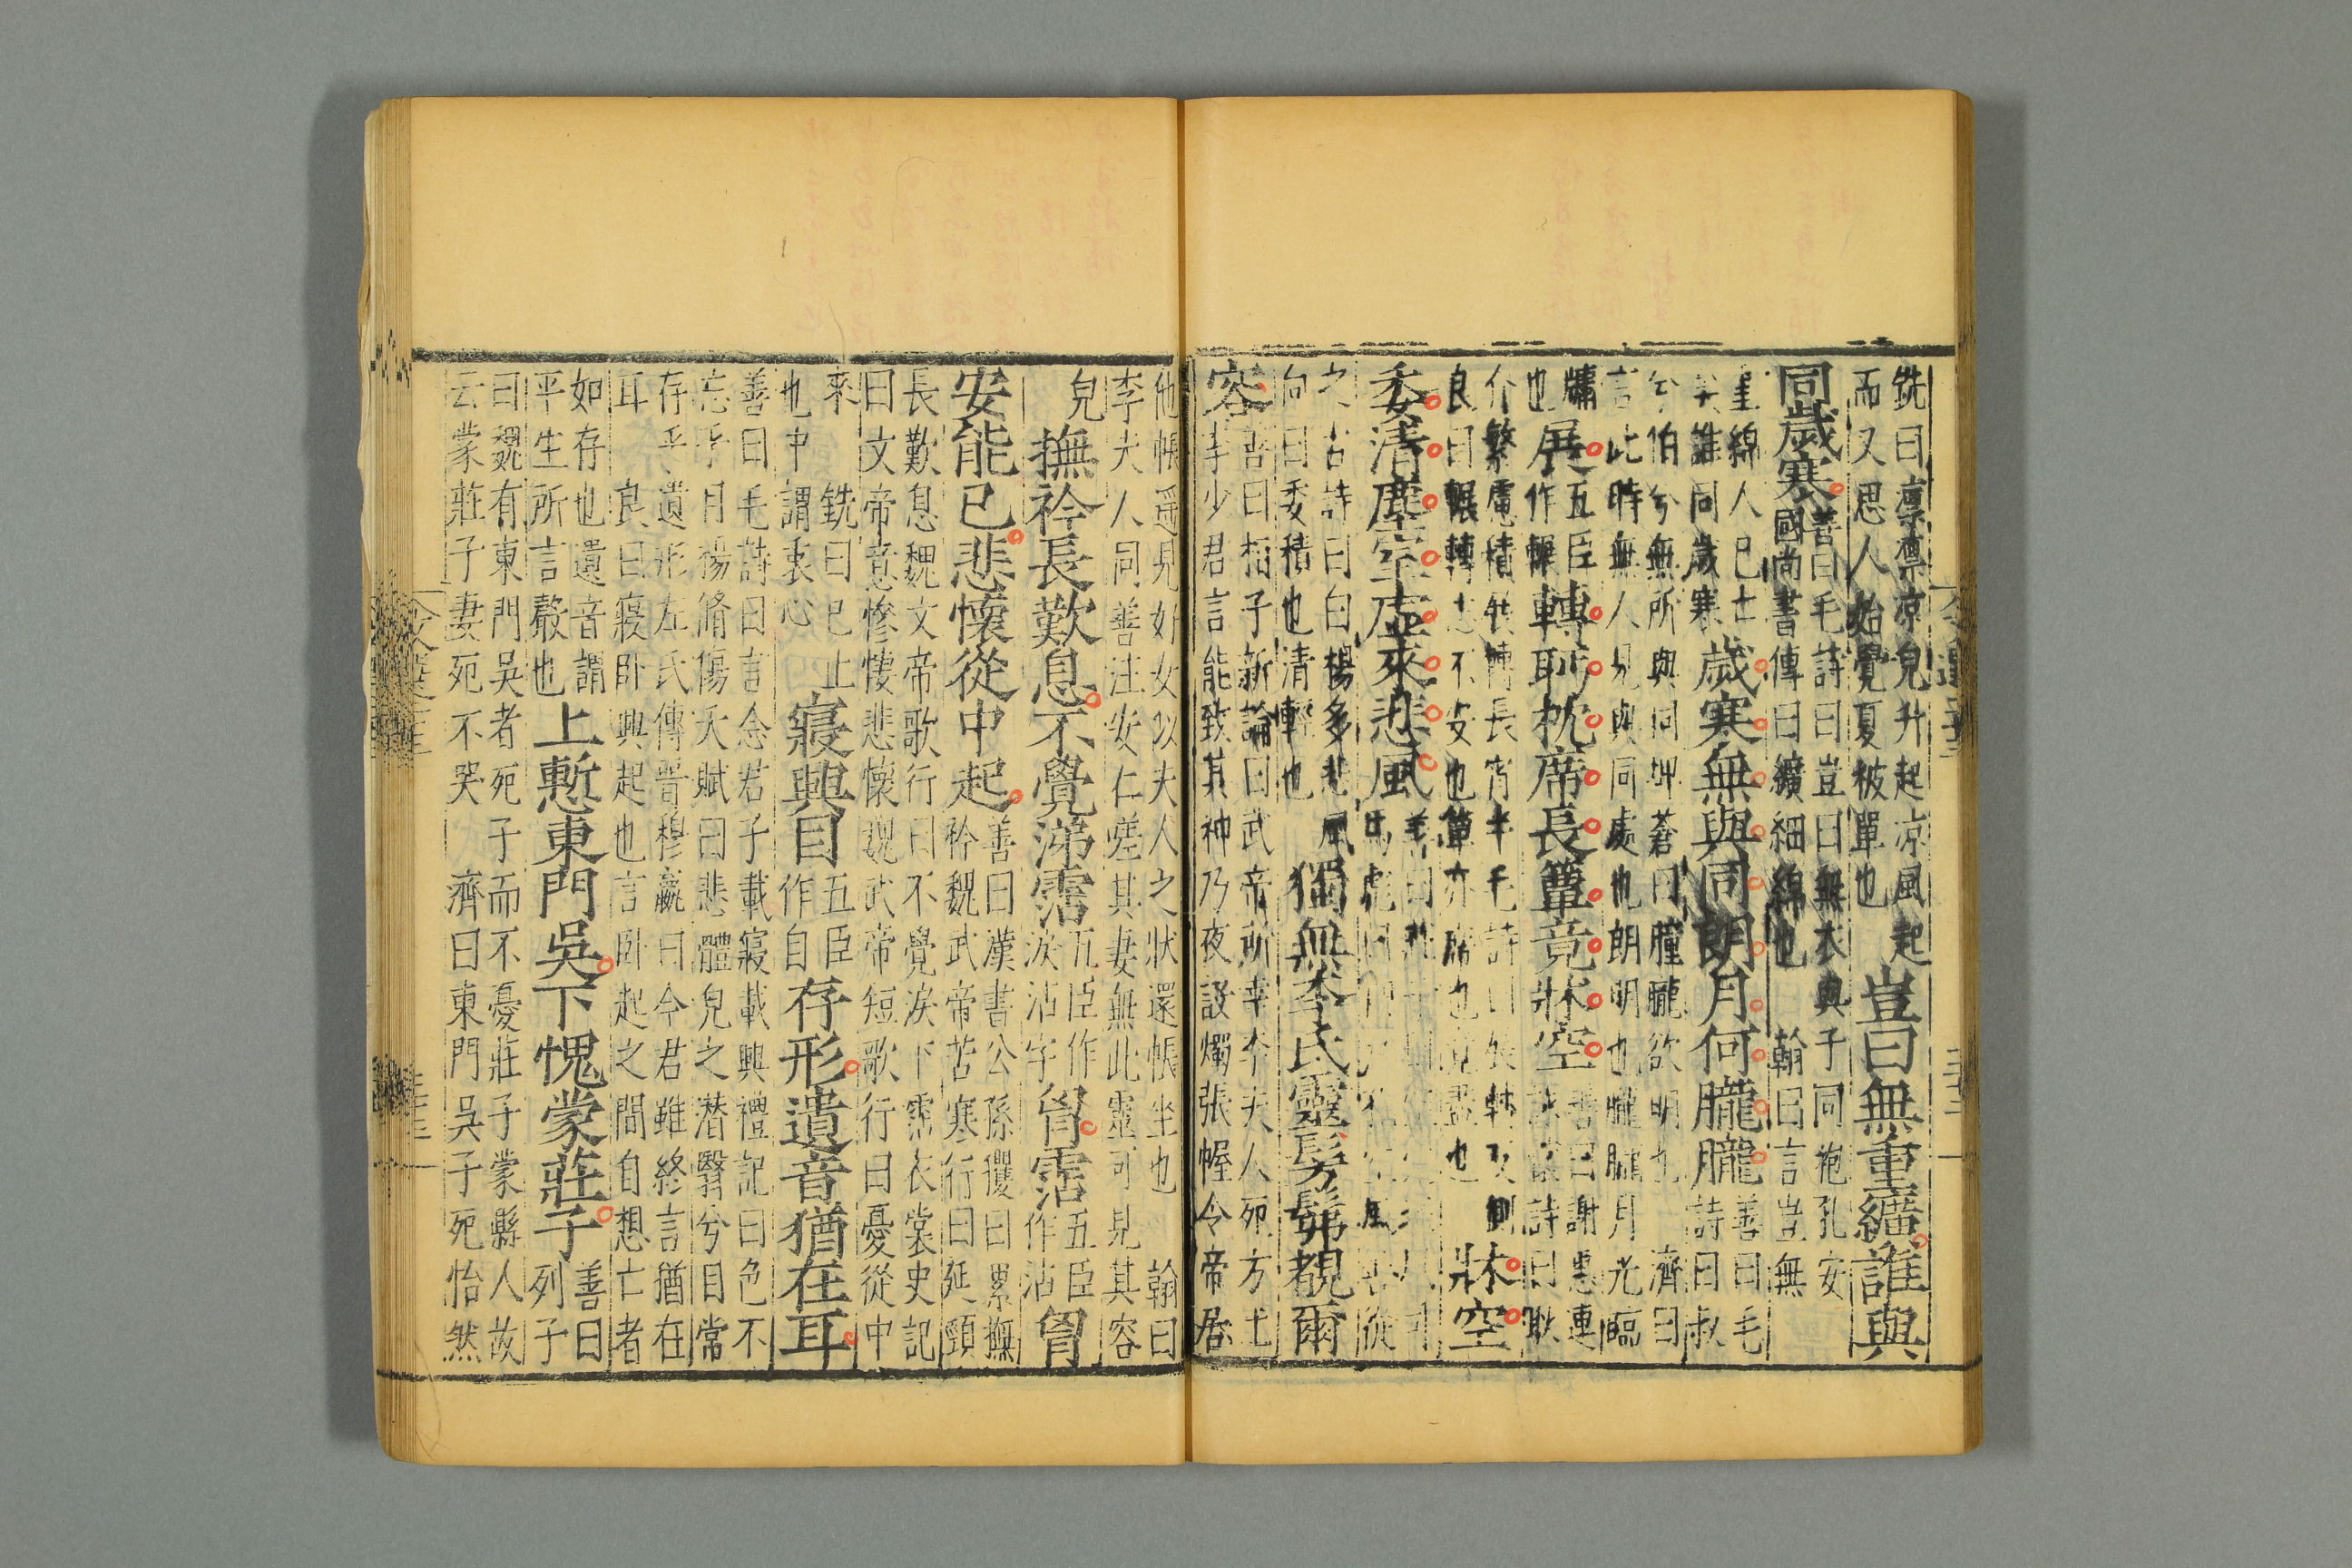 銑曰凛凛凉皃升起凉風起
而又思人始覺夏被單也
豈曰無重纊誰與
同歲寒
善曰毛詩曰豈曰無衣與子同袍孔安
國尚書傳曰纊細綿也
翰曰言豈無
重綿人已亡
矣誰同歲寒
歲寒無與同朗月何朧朧
善曰毛
詩曰叔
兮伯兮無所與同埤蒼曰朣朧欲明也
濟曰
言此時無人與同處也朗明也朧朧月光臨
牖
也
展
五臣
作輾
轉眄枕席長簟竟牀空
善曰謝惠連
詩曰耿
介繁慮積展轉長宵半毛詩曰展轉反側
良曰輾轉不安也簟亦席也竟盡也
牀空
委清塵室虛來悲風
之古詩曰白楊多悲風
向曰委積也清輕也
獨無李氏靈髣髴覩爾
容
善曰桓子新論曰武帝所幸李夫人死方士
李少君言能致其神乃夜設燭張幄令帝居
他帳遥見好女似夫人之狀還帳坐也
翰曰
李夫人同善注安仁嗟其妻無此靈可見其容
皃
撫衿長歎息不覺涕霑
五臣作
淚沾字
胷霑
五臣
作沾
胷
安能已悲懷從中起
善曰漢書公孫玃曰累撫
衿魏武帝苦寒行曰延頸
長歎息魏文帝歌行曰不覺淚下霑衣裳史記
曰文帝意慘悽悲懷魏武帝短歌行曰憂從中
來
銑曰已止
也中謂衷心
寢興目
五臣
作自
存形遺音猶在耳
善曰毛詩曰言念君子載寢載興禮記曰色不
忘乎目楊脩傷夭賦曰悲體皃之潛翳兮目常
存乎遺形左氏傳晉穆嬴曰今君雖終言猶在
耳
良曰寢卧興起也言卧起之間自想亡者
如存也遺音謂
平生所言聲也
上慙東門吳下愧蒙莊子
善曰
列子
曰魏有東門吳者死子而不憂莊子蒙縣人故
云蒙莊子妻死不哭
濟曰東門吳子死怡然